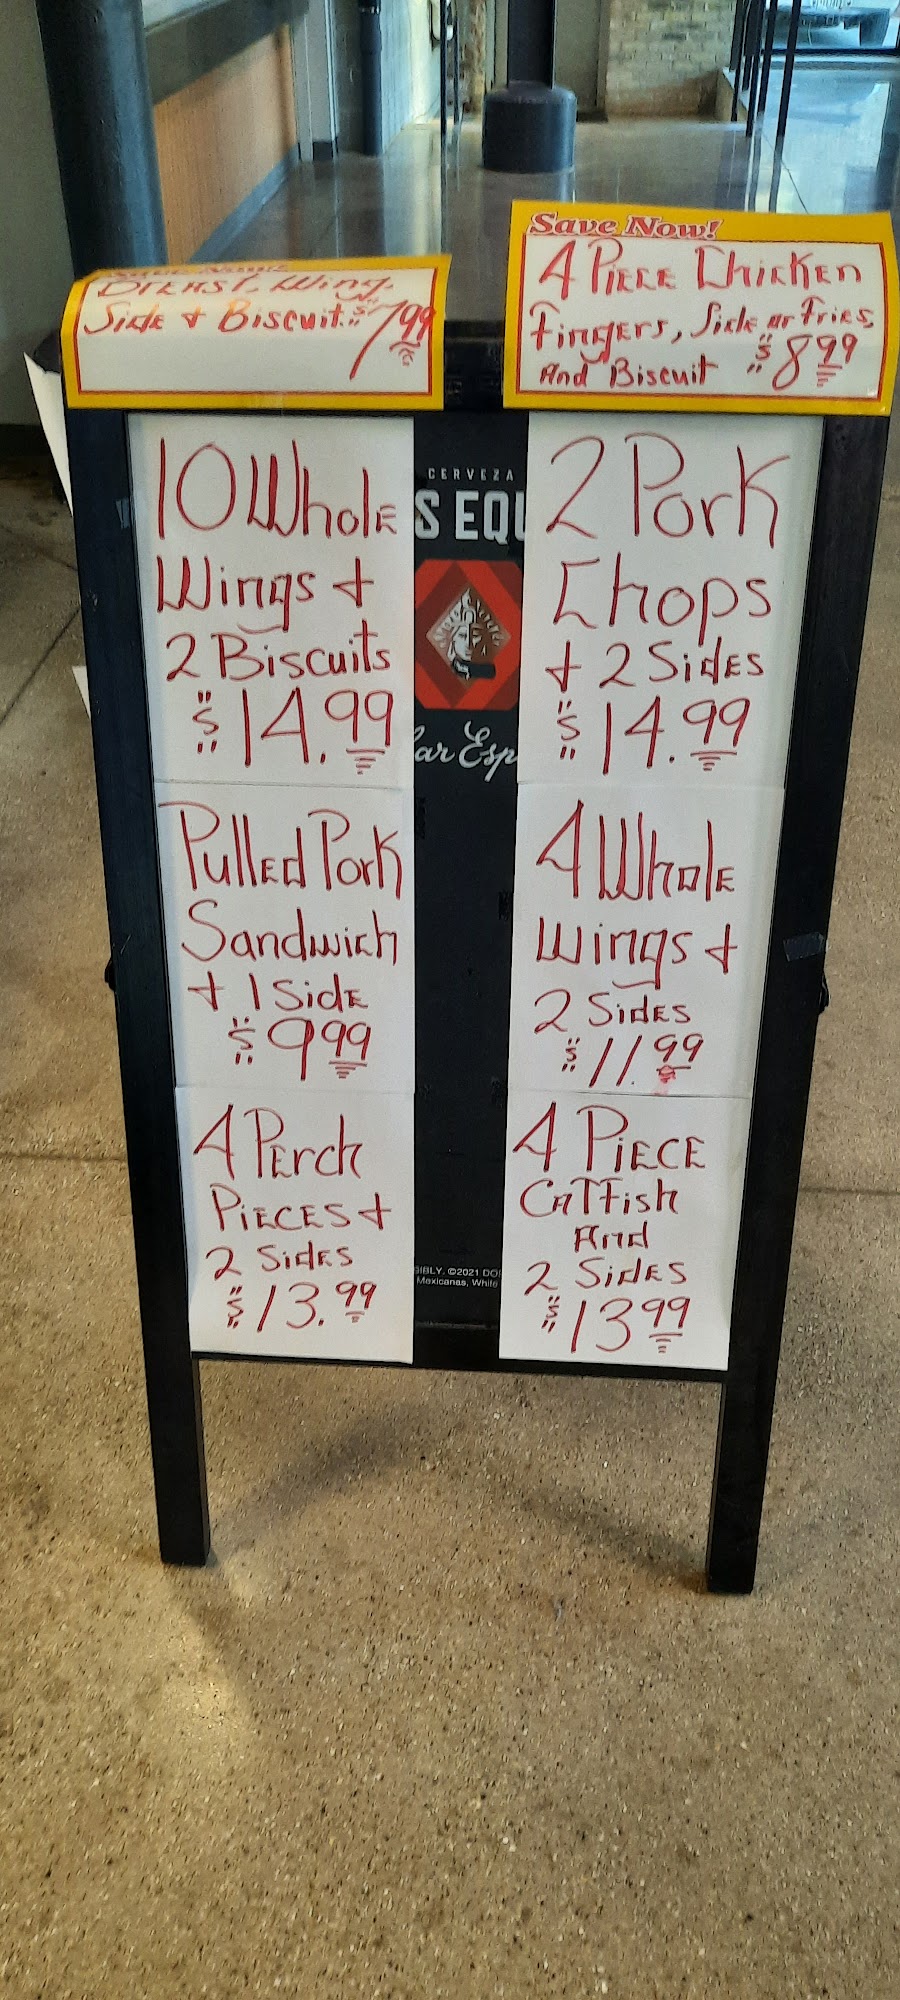 Save Now!
Breast, Wing,
Side + Biscuit $7.99
Save Now!
4 Piece Chicken
Fingers, Side or Fries,
And Biscuit $8.99
10 Whole
Wings +
2 Biscuits
$14.99
Pulled Pork
Sandwich
+ 1 Side
$9.99
4 Perch
Pieces +
2 Sides
$13.99
CERVEZA
S EQU
ar Esp
SIBLY. ©2021 DOS
Mexicanas, White
2 Pork
Chops
+ 2 Sides
$14.99
4 Whole
Wings +
2 Sides
$11.99
4 Piece
Catfish
And
2 Sides
$13.99